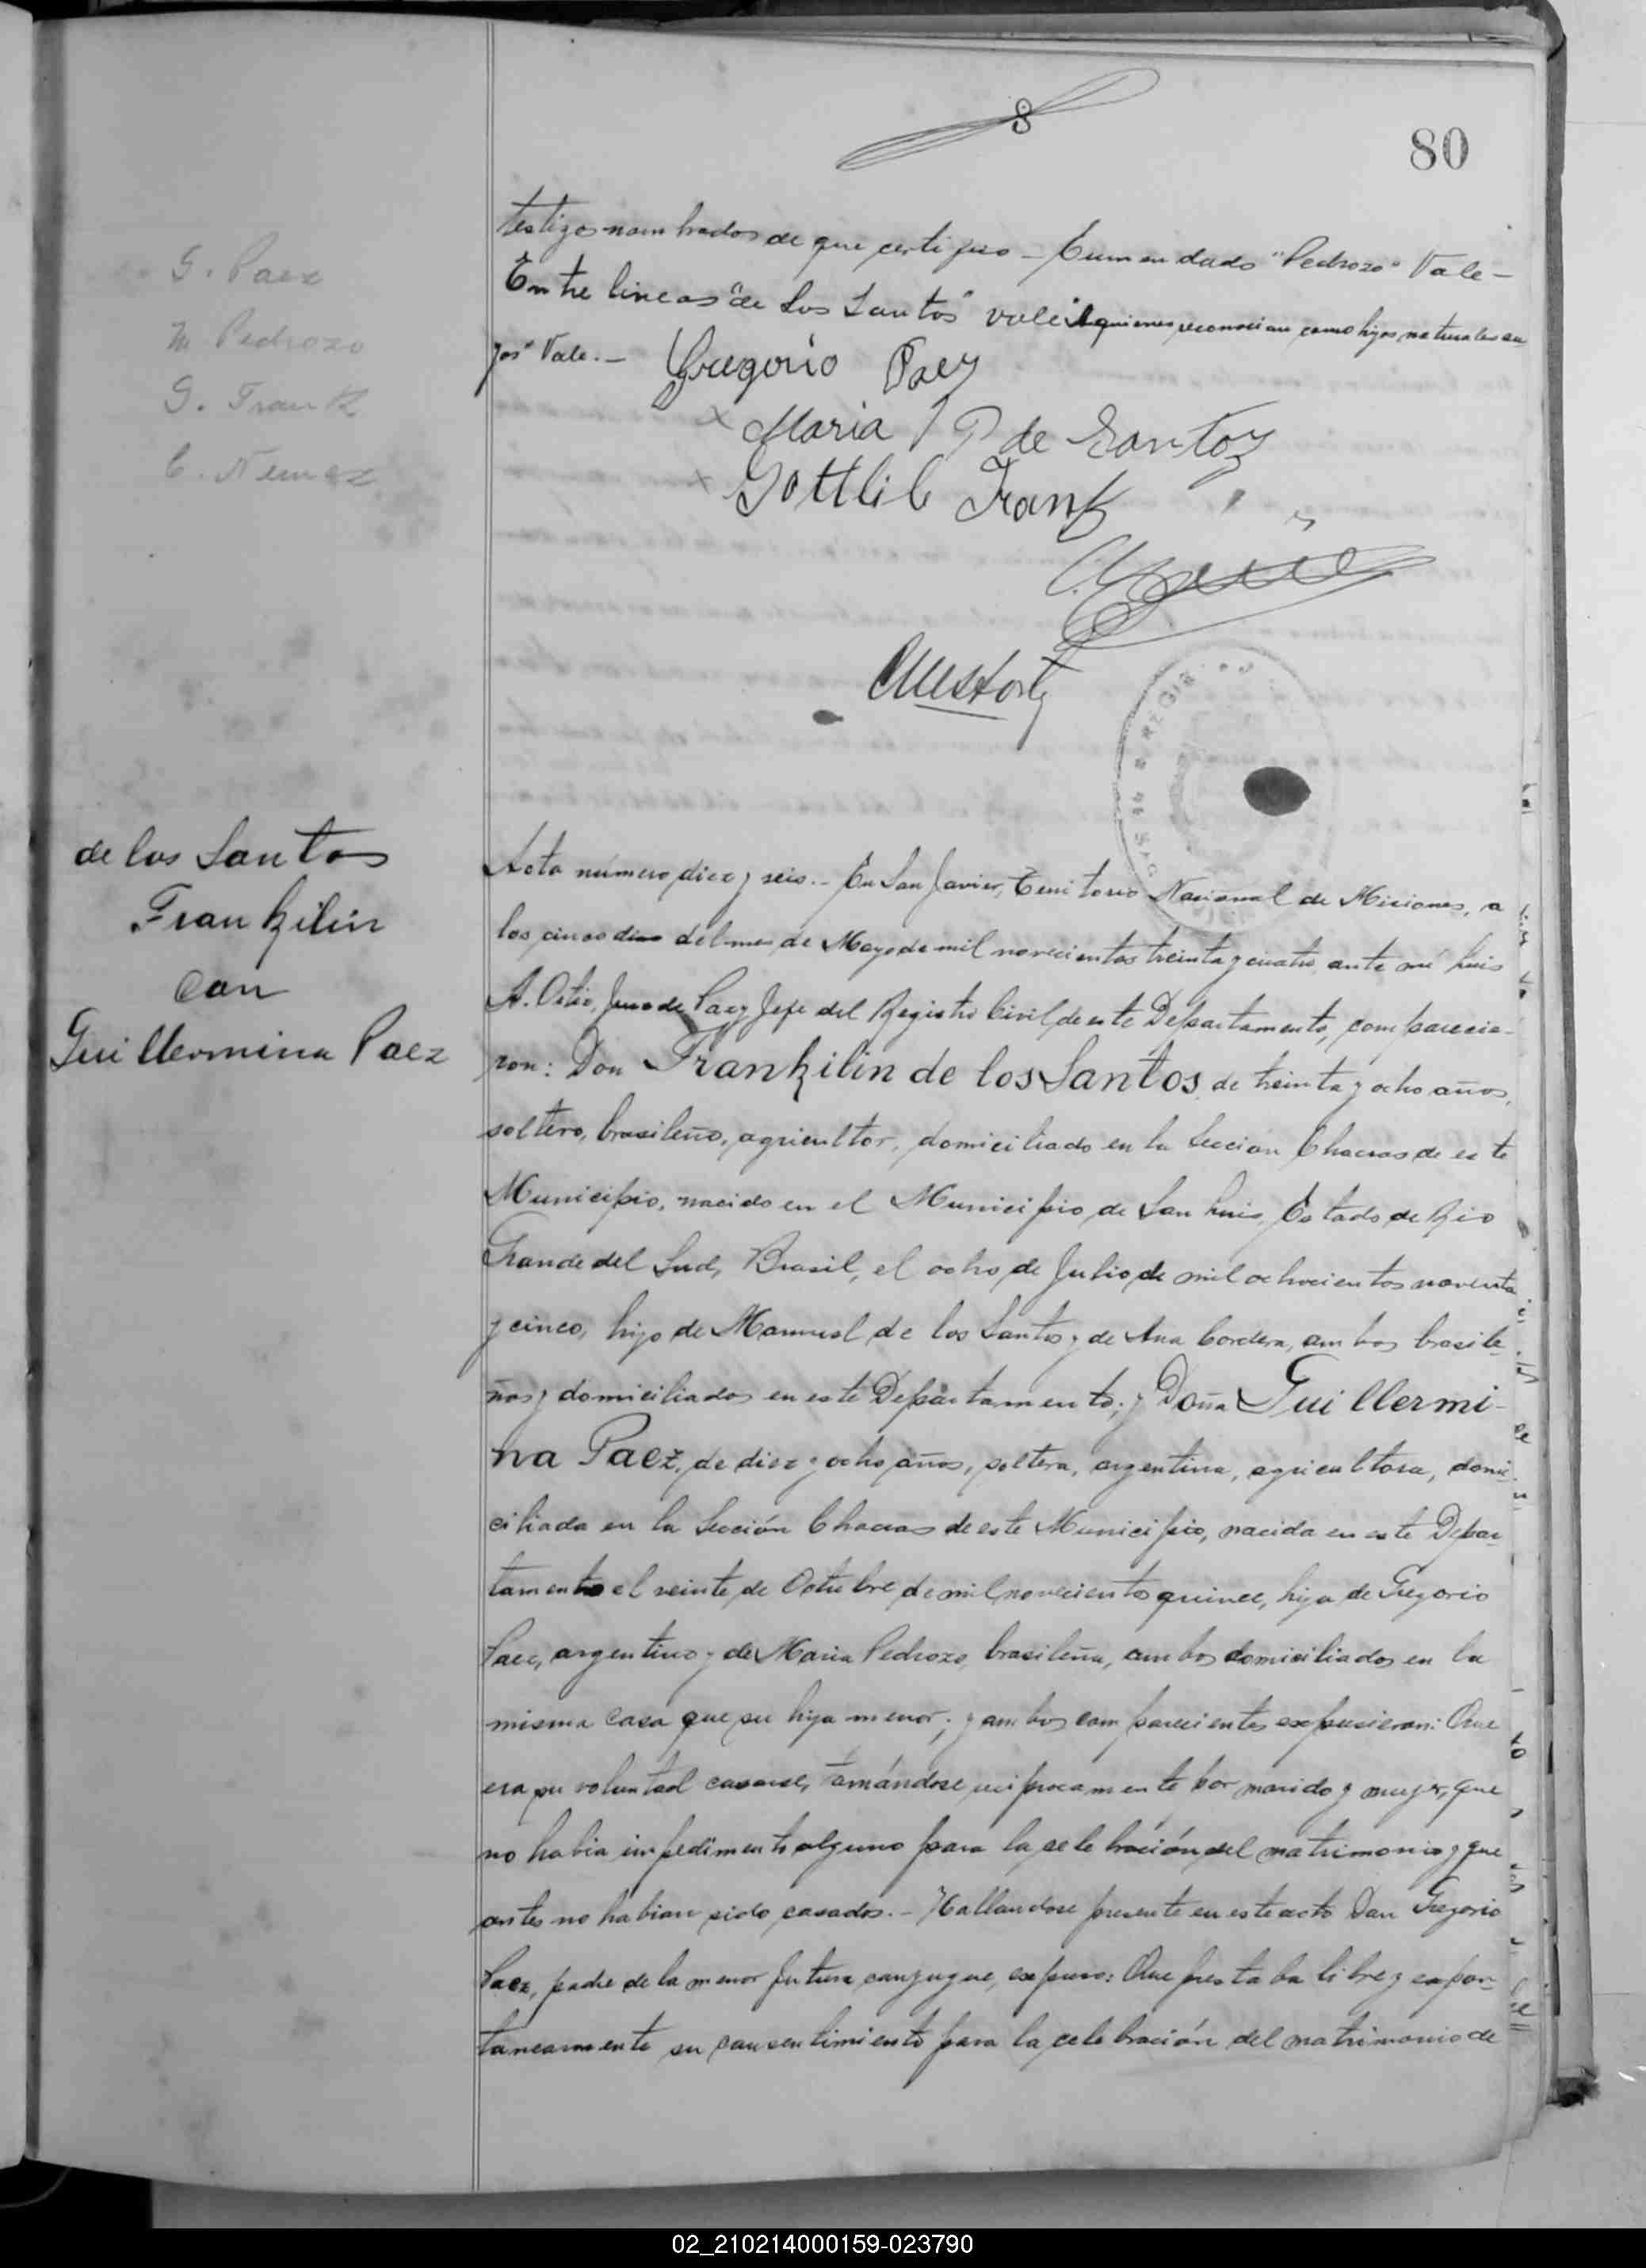 8
80
testigos nombrados de que certifico – Enmendado "Pedrozo" Vale –
Entre lineas "de los Santos" vale "a quienes reconocian como hijos naturales su
yos" Vale. –
G. Paez
M. Pedrozo
G. Frank
C. Nemez
Gregorio Paez
x Maria P de Santoz
x Gottlib Frank
REGIS
de los Santos
Frankilin
con
Guillermina Paez
Acta número diez y seis. – En San Javier, Territorio Nacional de Misiones, a
los cinco dias del mes de Mayo de mil novecientos treinta y cuatro, ante mi Luis
A. Ortiz, Juez de Paz y Jefe del Registro Civil de este Departamento, comparecie-
ron: Don Frankilin de los Santos, de treinta y ocho años,
soltero, brasileño, agricultor, domiciliado en la Sección Chacras de este
Municipio, nacido en el Municipio de San Luis, Estado de Rio
Grande del Sud, Brasil, el ocho de Julio de mil ochocientos noventa
y cinco, hijo de Manuel de los Santos y de Ana Cordera, ambos brasile-
ños y domiciliados en este Departamento; y Doña Guillermi-
na Paez, de diez y ocho años, soltera, argentina, agricultora, domi-
ciliada en la Sección Chacras de este Municipio, nacida en este Depar-
tamento el veinte de Octubre de mil novecientos quince, hija de Gregorio
Paez, argentino y de Maria Pedrozo, brasileña, ambos domiciliados en la
misma casa que su hija menor; y ambos comparecientes expusieron: Que
era su voluntad casarse, tomándose reciprocamente por marido y mujer, que
no habia impedimento alguno para la celebración del matrimonio y que
antes no habian sido casados. – Hallandose presente en este acto Don Gregorio
Paez, padre de la menor futura conyugue, expuso: Que prestaba libre y espon-
taneamente su consentimiento para la celebración del matrimonio de
02_210214000159-023790